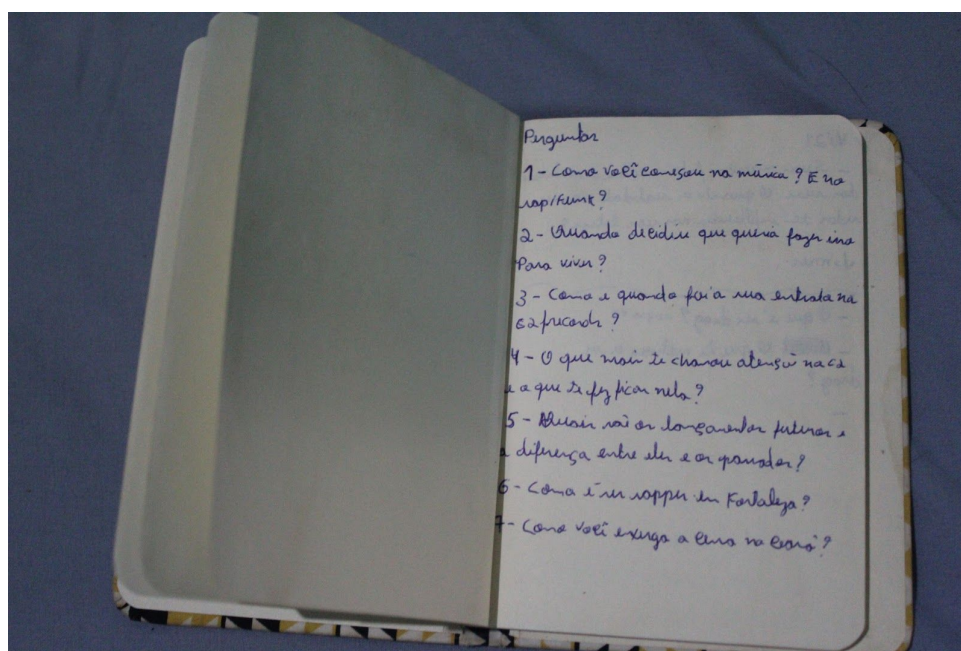 Perguntas
1- Como você começou na música? E no
rap/funk?
2- Quando decidiu que queria fazer isso
Para viver?
3- Como e quando foi a sua entrata na
records?
4- O que mais te chamou atenção na
e o que te fez ficar nela?
5- Quais são os lançamentos futuros e
a diferença entre eles e os passados?
6- Como é ser rapper em Fortaleza?
7- Como você enxerga a cena no Ceará?